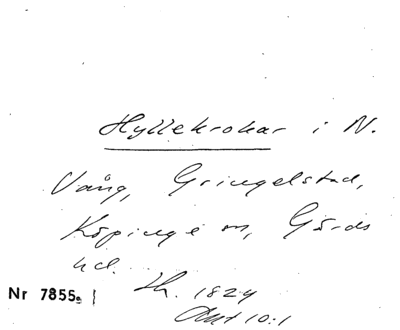 Hyllekrokar i N.
Vång, Gringelstad,
Köpinge sn, Gärds
hd.
Nr 7855. Th. 1824
10:1